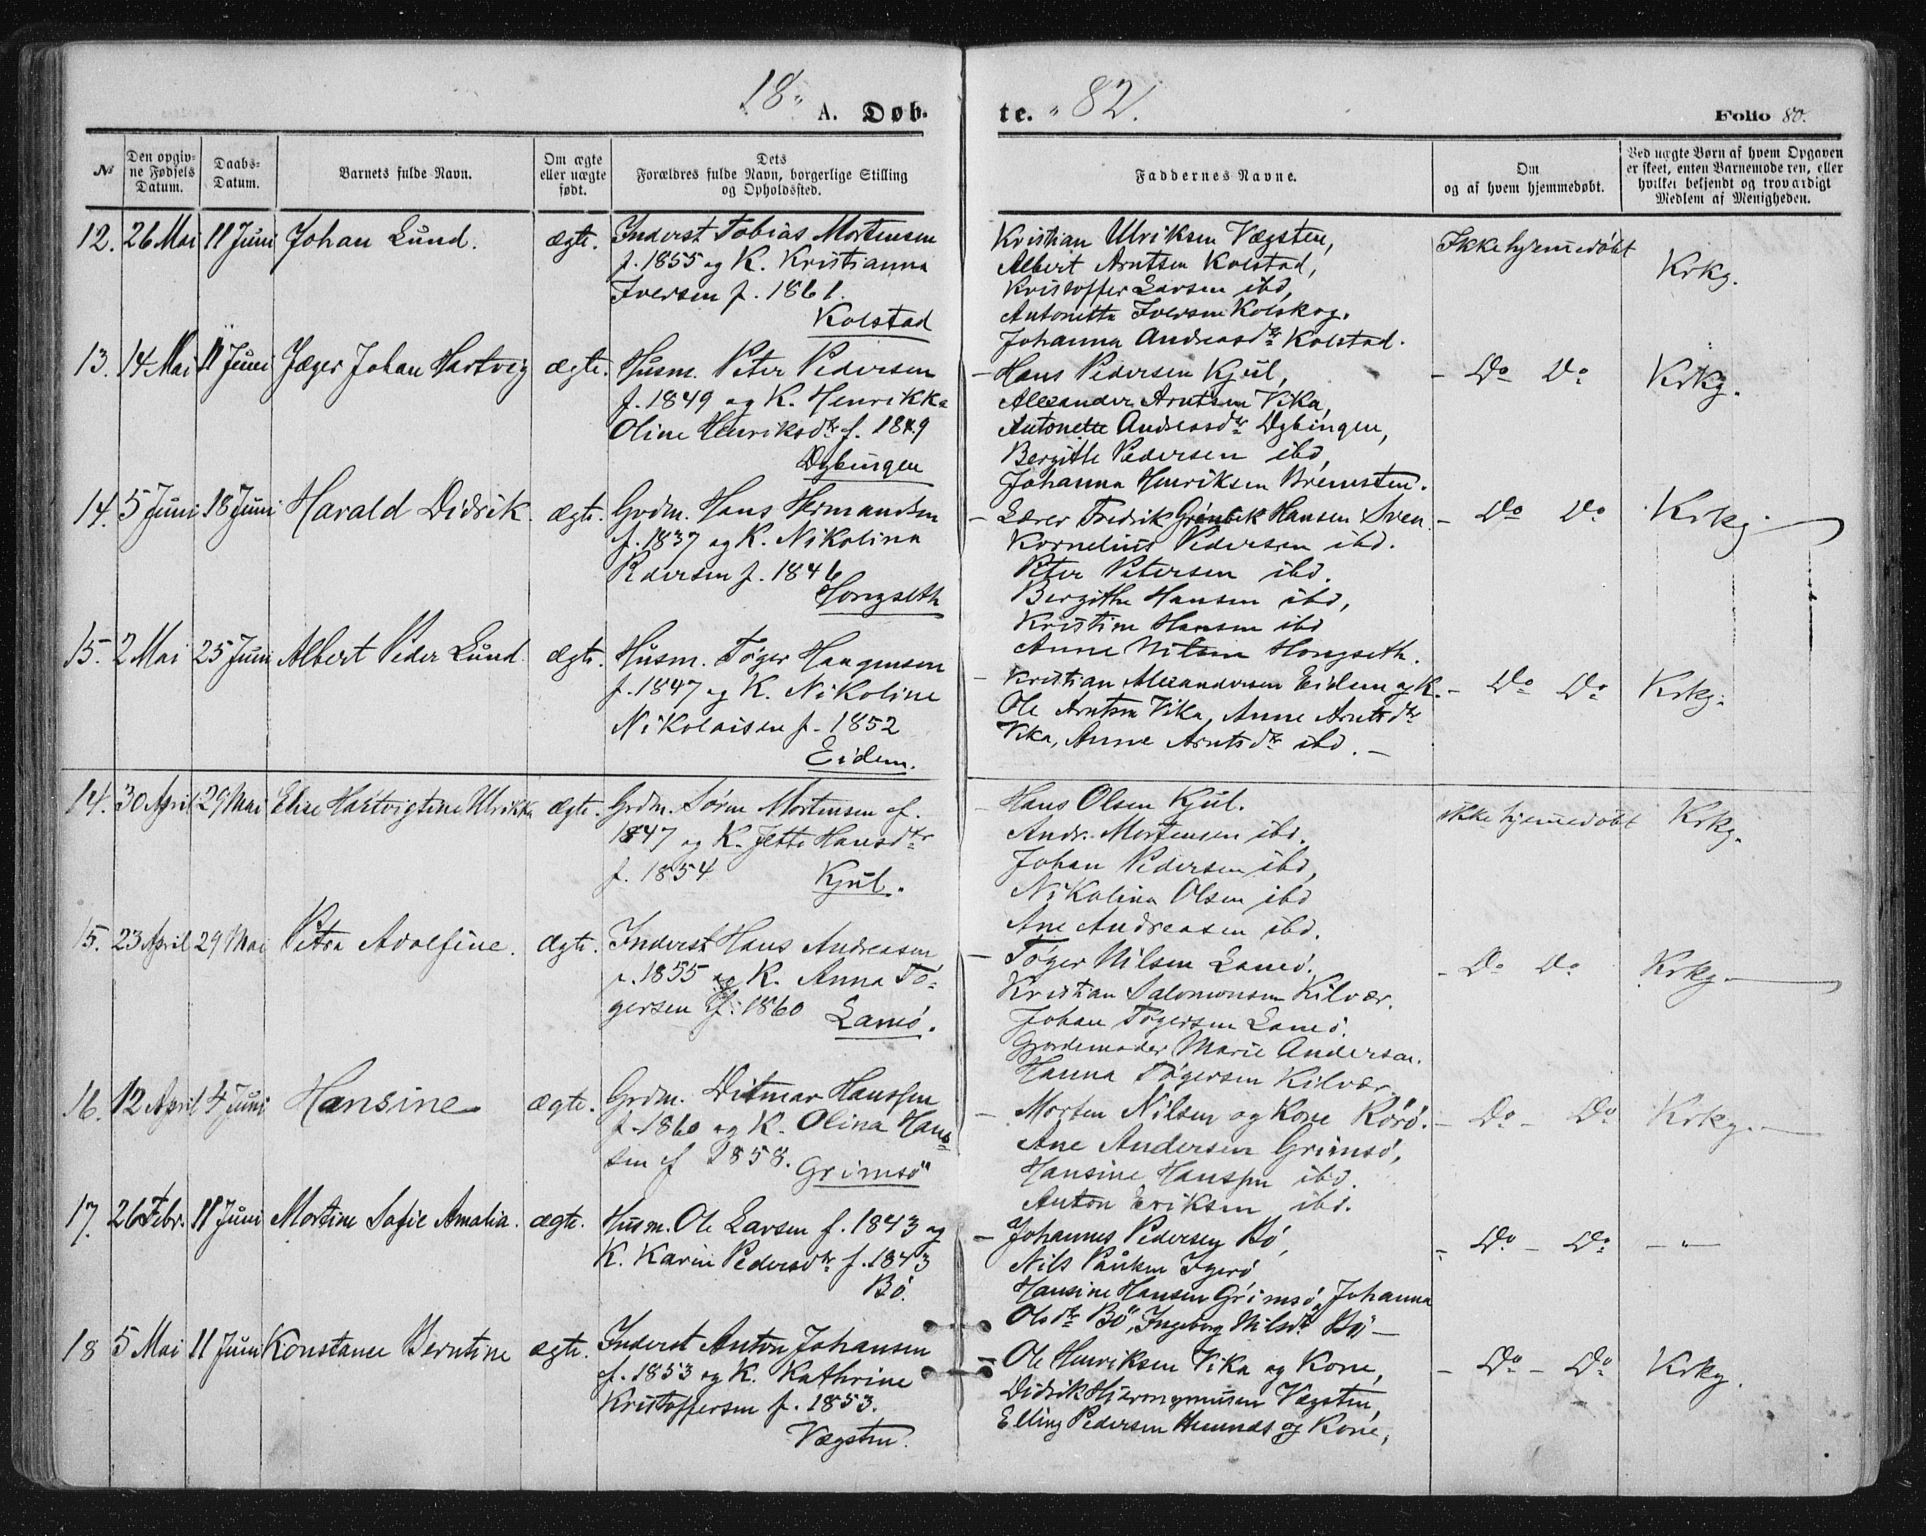 18 A. Døb- te. 82. Folio 80.
№ | Den opgivne Fødsels Datum. | Daabs-Datum. | Barnets fulde Navn. | Om ægte eller uægte født. | Dets Forældres fulde Navn, borgerlige Stilling og Opholdssted. | Faddernes Navne. | Om og af hvem hjemmedøbt. | Ved uægte Børn af hvem Opgaven er skeet, enten Barnemoderen, eller hvilket bekjendt og troværdigt Medlem af Menigheden.
12. 26 Mai 11 Juni Johan Lund. ægte. Inderst Tobias Mortensen
f. 1855 og K. Kristianna
Iversen f. 1861.
Kolstad
Kristian Ulriksen Vægsten,
Albert Arntsen Kolstad,
Kristoffer Larsen ibd,
Antonetta Iversen Kolskog.
Johanna Andreasdtr Kolstad.
Ikke hjemmedöbt Krkg.
13. 14 Mai 11 Juni Jæger Johan Hartvig ægte. Husm. Peter Pedersen
f. 1849 og K. Henrikka
Oline Henriksdtr f. 1849
Dybingen
- Hans Pedersen Kjul,
Alexander Arntsen Vika,
Antonette Andreasdtr Dybingen,
Bergitte Pedersen ibd,
Johanna Henriksen Bremsten.
- Do Do Krkg.
14. 5 Juni 18 Juni Harald Didrik ægte. Grdm. Hans Hermandsen
f. 1837 og K. Nikolina
Pedersen f. 1846
Hongseth
- Lærer Fredrik Grönbek Hansen Sven.
Kornelius Pedersen ibd.
Peter Petersen ibd.
Bergithe Hansen ibd,
Kristine Hansen ibd
Anne Hongseth.
- Do Do Krkg.
15. 2 Mai 25 Juni Albert Peder Lund ægte. Husm. Töger Haagensen
f. 1847 og K. Nikoline
Nikolaisen f. 1852
Eidem.
- Kristian Alexandersen Eidem og K.
Ole Arntsen Vika, Anne Arntsdtr
Vika, Anne Arntsdtr ibd. -
- Do Do Krkg.
14. 30 April 29 Mai Elise Hartvigtine Ulrikka ægte. Grdm. Sören Mortensen f.
1847 og K. Jette Hansdtr
f. 1854 Kjul.
- Hans Olsen Kjul.
Andr. Mortensen ibd.
Johan Pedersen ibd,
Nikolina Olsen ibd
Ane Andreasen ibd.
ikke hjemmedöbt Krkg.
15. 23 April 29 Mai Petra Adolfine. ægte. Inderst Hans Andreasen
f. 1855 og K. Anna Tö-
gersen f. 1860 Lamö.
- Töger Nilsen Lamö.
Kristian Salomonsen Kilvær.
Johan Tögersen Lamö.
Gjordemoder Marie Andersen.
Hanna Tögersen Kilvær
- Do Do Krkg.
16. 12 April 4 Juni Hansine ægte. Grdm. Ditmar Hanssen
f. 1860 og K. Olina Han-
sen f 1858. Grimsö
- Morten Nilsen og Kone Rörö.
Ane Andersen Grimsö,
Hansine Hanssen ibd.
Anton Eriksen ibd.
- Do - Do Krkg.
17. 26 Febr. 11 Juni Mortine Sofie Amalia. ægte. Husm. Ole Larsen f. 1843 og
K. Karin Pedersdtr f. 1843
Bö.
- Johannes Pedersen Bö,
Nils Igerö
Hansine Hansen Grimsö, Johanna
Olsdtr Bö, Ingeborg Nilsdtr Bö -
- Do - Do - " -
18 5 Mai 11 Juni Konstance Berntine ægte. Inderst Anton Johansen
f. 1853 og K. Kathrine
Kristoffersen f. 1853.
Vægsten.
- Ole Henriksen Vika og Kone,
Didrik Hjeronymusen Vægsten,
Elling Pedersen Hemnæs og Kone,
- Do - Do Krkg.